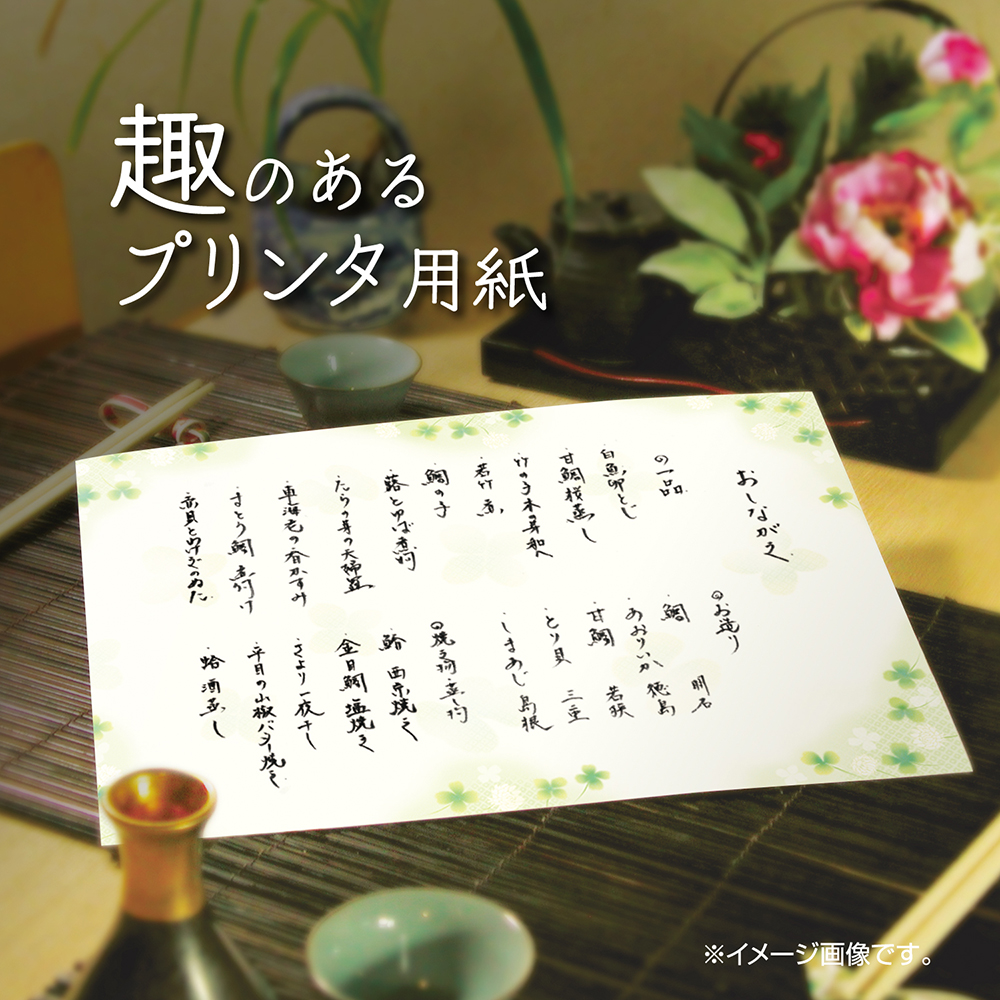 趣のある
プリンタ用紙
おしながき
の一品
・白魚卵とじ
・甘鯛桜蒸し
・竹の子木の芽和へ
・若竹煮
・鯛の子
・蕗とゆば煮物
・たらの芽の天婦羅
・車海老の香かすみ
・さとう鯛煮付け
・赤貝とわけぎのぬた
お造り
・鯛 明石
・あおりいか 徳島
・甘鯛 若狭
・とり貝 三重
・しまあじ 島根
焼き物蒸し物
・鮨西京焼き
・金目鯛塩焼き
・さより一夜干し
・平目の山椒バター焼き
・蛤酒蒸し
※イメージ画像です。